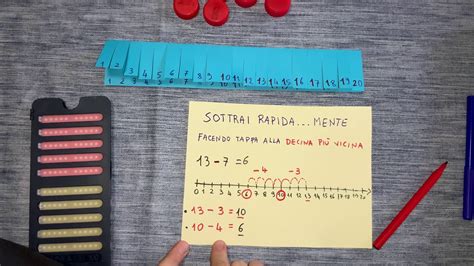 1 2 3 4 5 6 7 8 9 10 11 12 13 14 15 16 17 18 19 20
SOTTRAI RAPIDA...MENTE
FACENDO TAPPA ALLA DECINA PIÙ VICINA
13-7=6
-4 -3
0 1 2 3 4 5 6 7 8 9 10 11 12 13 14 15 16 17 18 19 20
• 13-3=10
• 10-4=6